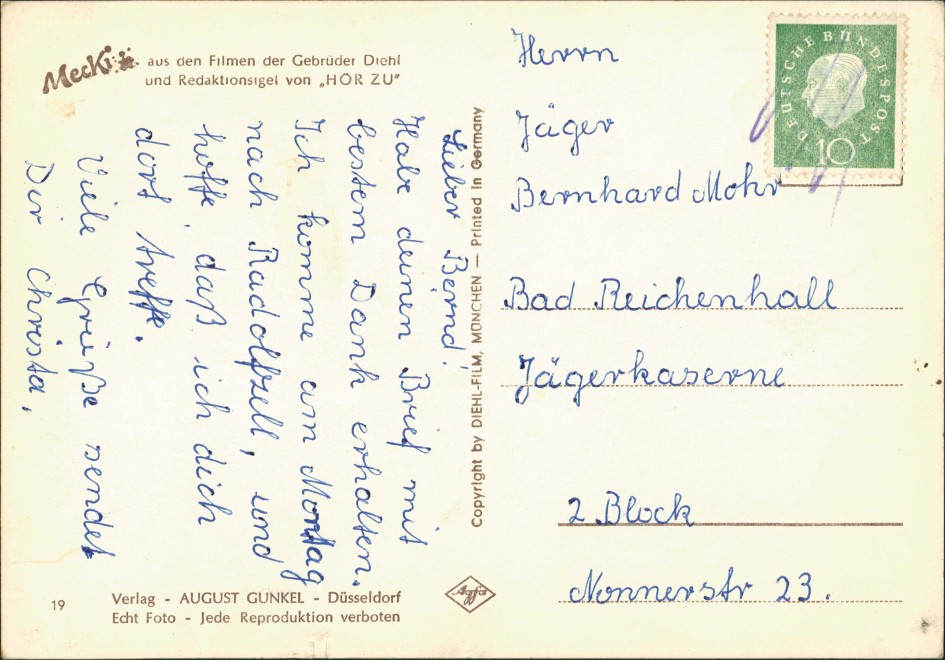 Mecki aus den Filmen der Gebrüder Diehl
und Redaktionsigel von „HÖR ZU"
Lieber Bernd!
Habe deinen Brief mit
bestem Dank erhalten.
Ich komme am Montag
nach Radolfzell, und
hoffe, daß ich dich
dort treffe.
Viele Grüße sendet
Dir Christa,
Copyright by DIEHL-FILM, MÜNCHEN — Printed in Germany
DEUTSCHE BUNDESPOST
10
Herrn
Jäger
Bernhard Mohr
Bad Reichenhall
Jägerkaserne
2 Block
Nonnerstr 23.
19
Verlag - AUGUST GUNKEL - Düsseldorf
Echt Foto - Jede Reproduktion verboten
Agfa